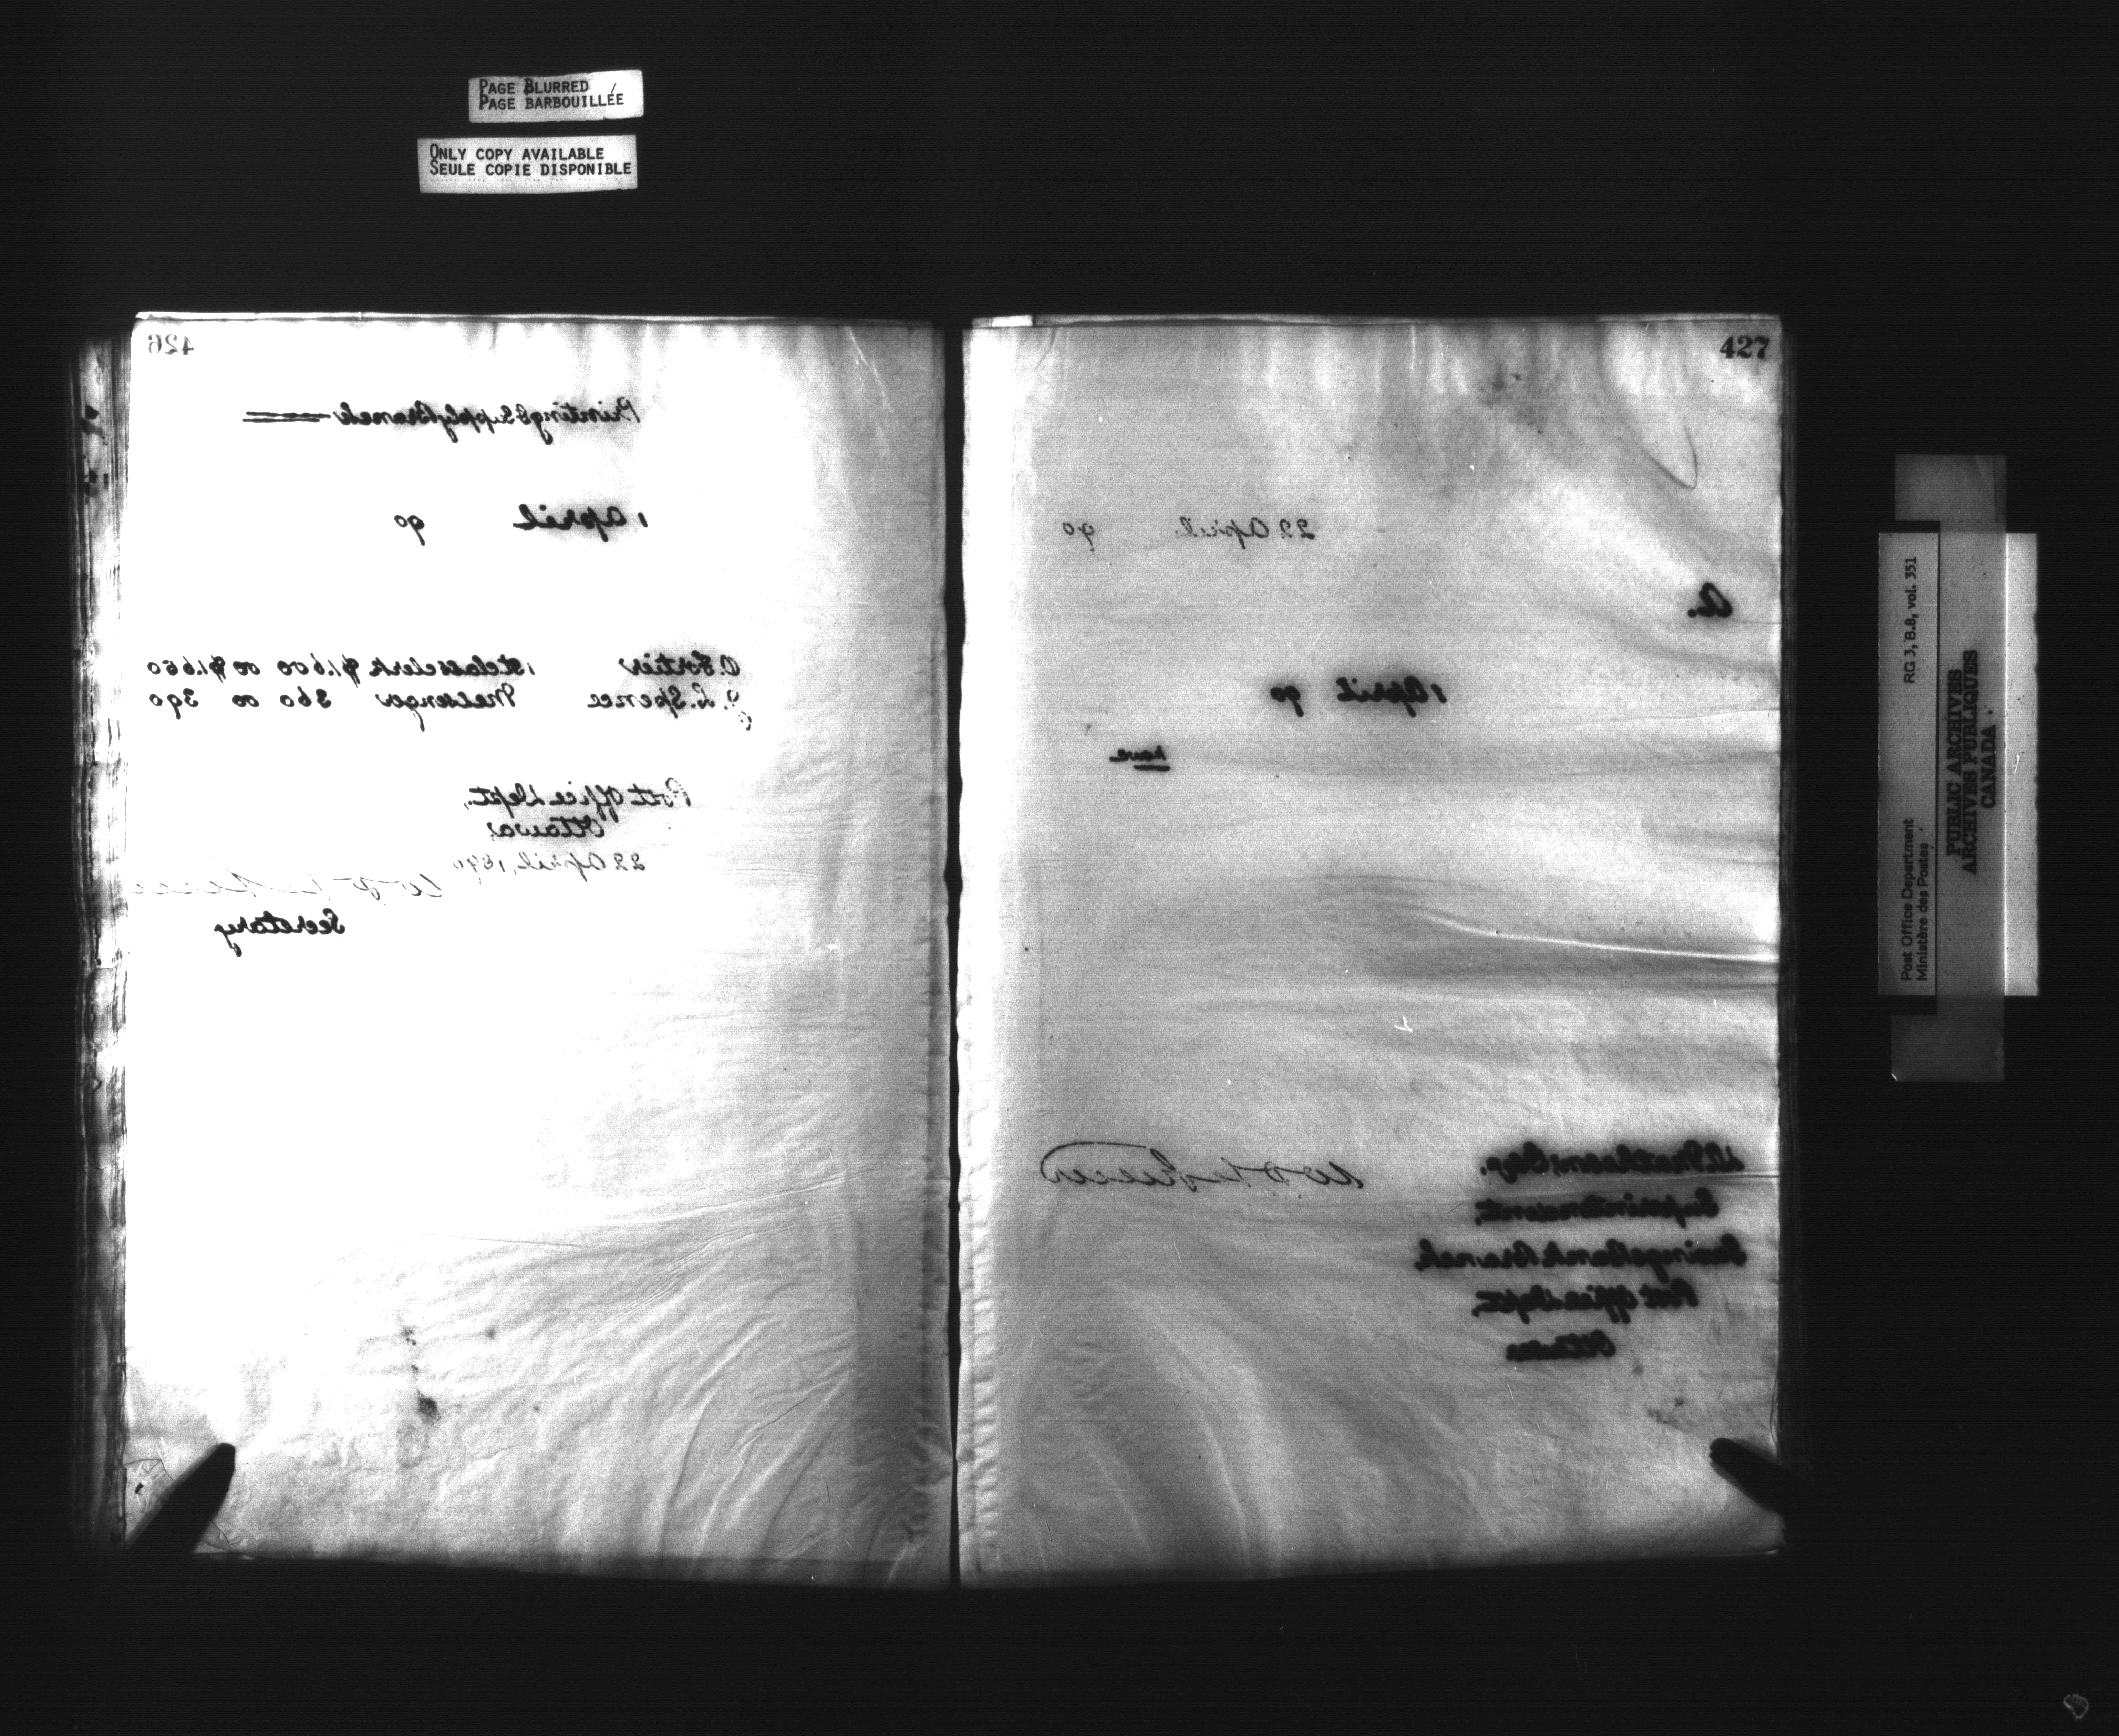 PAGE BLURRED
PAGE BARBOUILLÉE
ONLY COPY AVAILABLE
SEULE COPIE DISPONIBLE
426
Printing & Supply Branch
1 April 90
O. Fortier 1st class clerk $1.600 00 $1.650
J. L. Spence Messenger 360 00 390
Post Office Dept.,
Ottawa,
22 April, 1890
Secretary
427
22 April 90
A.
1 April 90
have
Esq.
Superintendent,
Savings Bank Branch,
Post Office Dept.,
Ottawa
Post Office Department RG 3, B.8, vol. 351
Ministère des Postes
PUBLIC ARCHIVES
ARCHIVES PUBLIQUES
CANADA